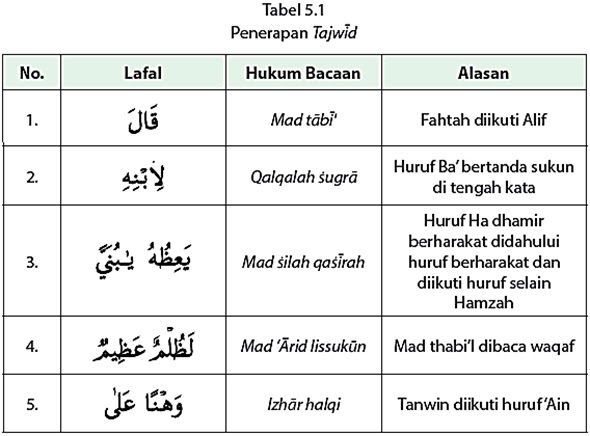 Tabel 5.1
Penerapan Tajwīd
No. Lafal Hukum Bacaan Alasan
1. قَالَ Mad tābī' Fahtah diikuti Alif
2. لِابْنِهِ Qalqalah ṡugrā Huruf Ba' bertanda sukun
di tengah kata
3. يَعِظُهُ يٰبُنَيَّ Mad ṡilah qaṡīrah Huruf Ha dhamir
berharakat didahului
huruf berharakat dan
diikuti huruf selain
Hamzah
4. لَظُلْمٌ عَظِيْمٌ Mad 'Ārid lissukūn Mad thabi'I dibaca waqaf
5. وَهْنًا عَلٰى Izhār halqi Tanwin diikuti huruf 'Ain